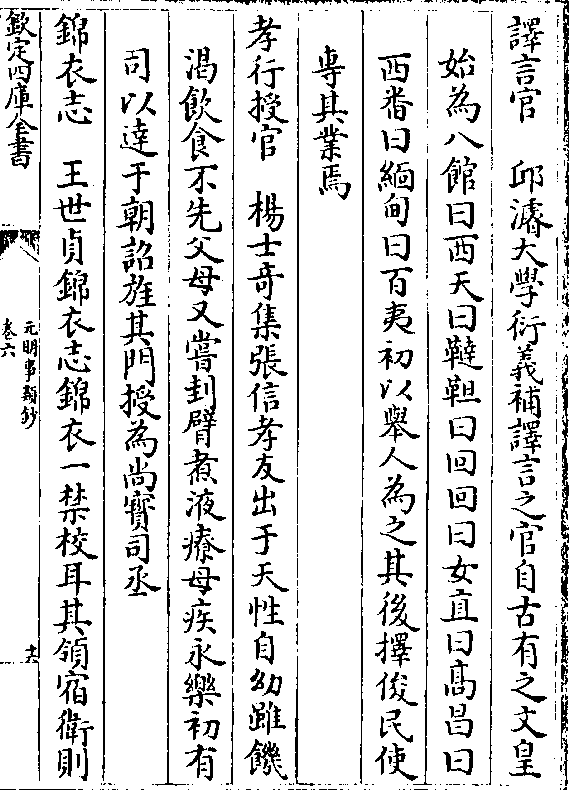 譯言官　邱濬大學衍義補譯言之官自古有之文皇
始為八館曰西天曰韃靼曰回回曰女直曰高昌曰
西番曰緬甸曰百夷初以舉人為之其後擇俊民使
專其業焉
孝行授官　楊士奇集張信孝友出于天性自幼雖饑
渴飲食不先父母又嘗刲臂煮液療母疾永樂初有
司以達于朝詔旌其門授為尚寳司丞
錦衣志　王世貞錦衣志錦衣一禁校耳其領宿衛則
欽定四庫全書
元明事類鈔
卷六
十六